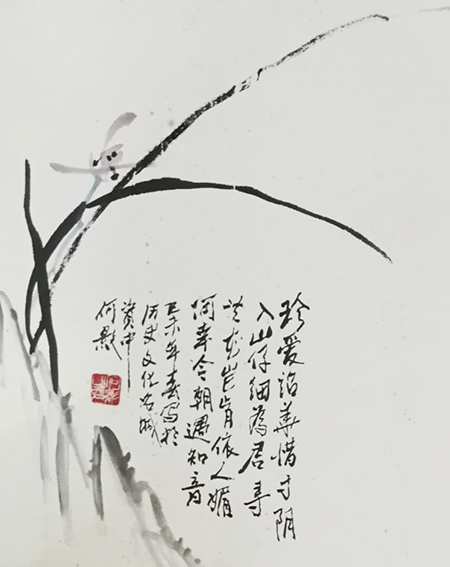 珍爱韶華惜寸阴
入山仔细為君寻
兰花岂肯依人媚
何幸今朝遇知音
乙未年春寫於
历史文化名城
资中
何